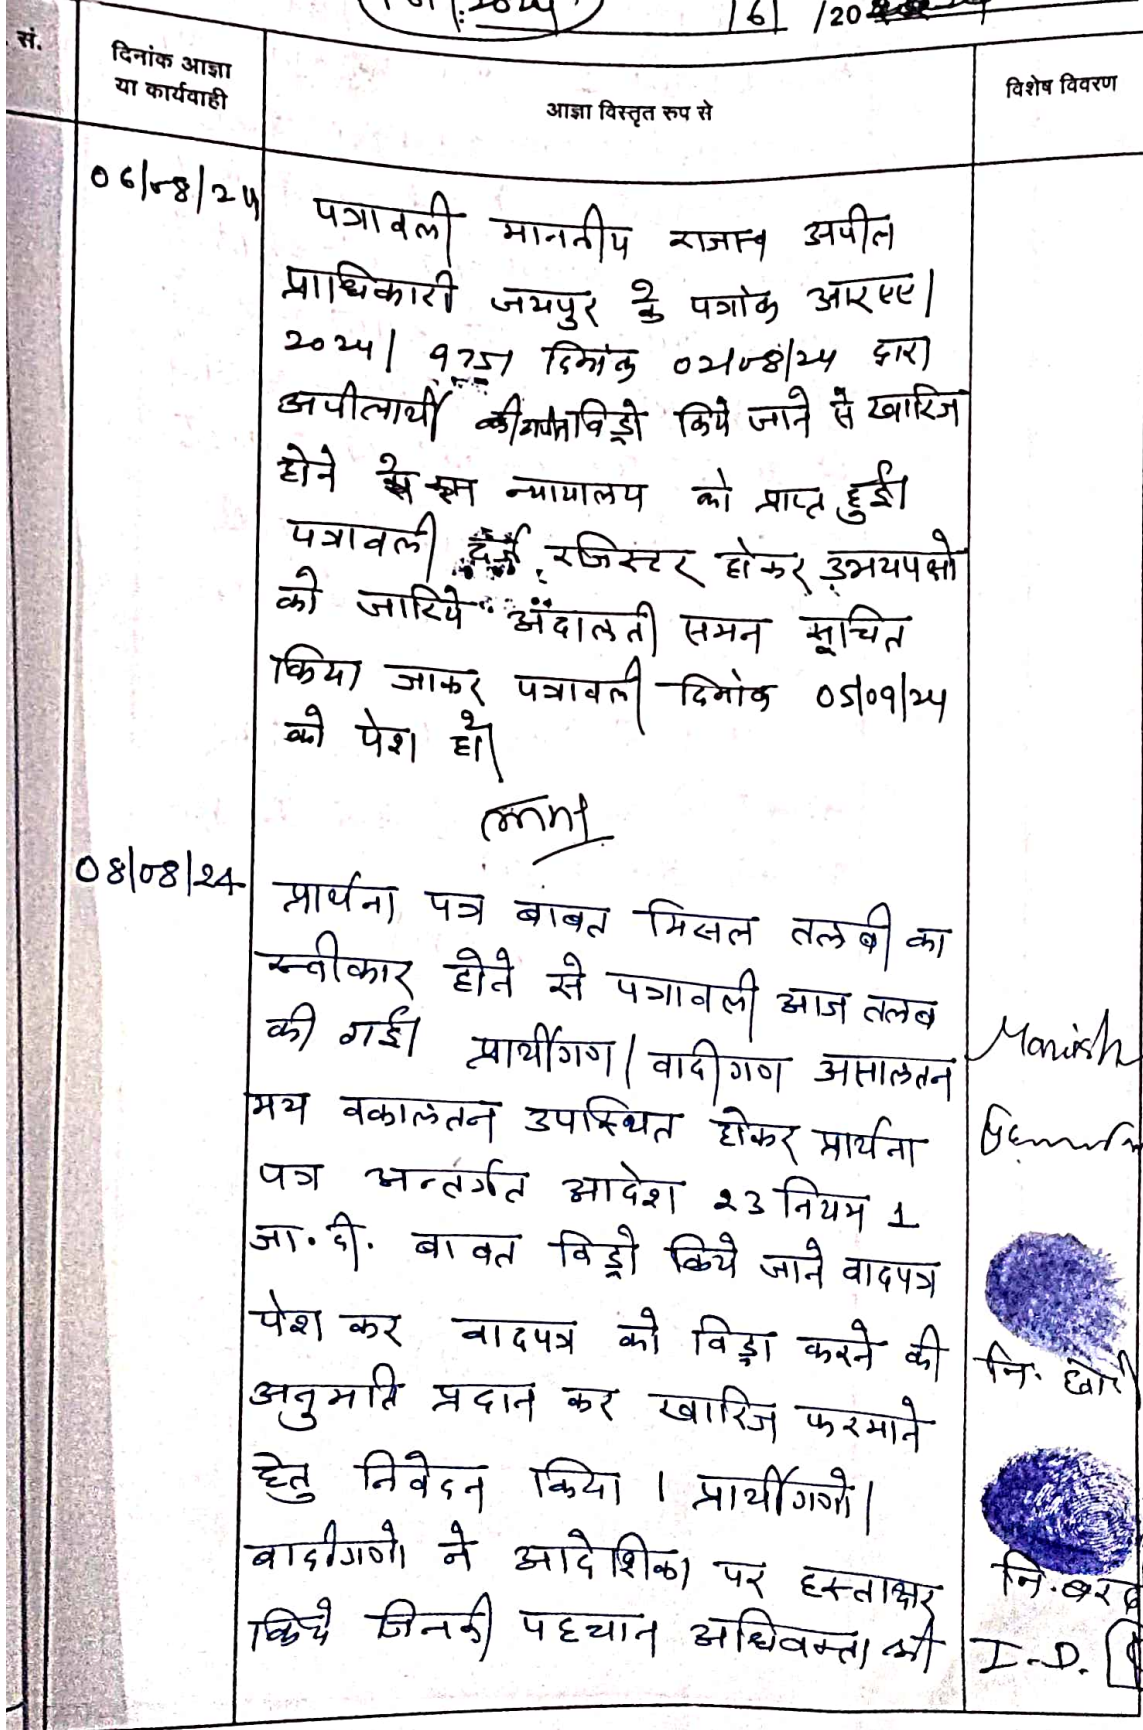 16 /20
सं.
दिनांक आज्ञा
या कार्यवाही
आज्ञा विस्तृत रुप से
विशेष विवरण
06/08/24
पत्रावली माननीय राजस्व अपील
प्राधिकारी जयपुर के पत्रांक आरएए/
2024/ 975 दिनांक 02/08/24 द्वारा
अपीलार्थी की विड्रो किये जाने से खारिज
होने से इस न्यायालय को प्राप्त हुई।
पत्रावली दर्ज रजिस्टर होकर उभयपक्षो
को जारिये अदालती समन सूचित
किया जाकर पत्रावली दिनांक 05/09/24
को पेश हो।
08/08/24
प्रार्थना पत्र बाबत मिसल तलबी का
स्वीकार होने से पत्रावली आज तलब
की गई। प्रार्थीगण/वादीगण असालतन
मय वकालतन उपस्थित होकर प्रार्थना
पत्र अन्तर्गत आदेश 23 नियम 1
जा.दी. बाबत विड्रो किये जाने वादपत्र
पेश कर वादपत्र को विड्रा करने की
अनुमति प्रदान कर खारिज फरमाने
हेतु निवेदन किया। प्रार्थीगणो/
वादीगणो ने आदेशिका पर हस्ताक्षर
किये जिनकी पहचान अधिवक्ता श्री
Manish
नि.
नि.
I.D.